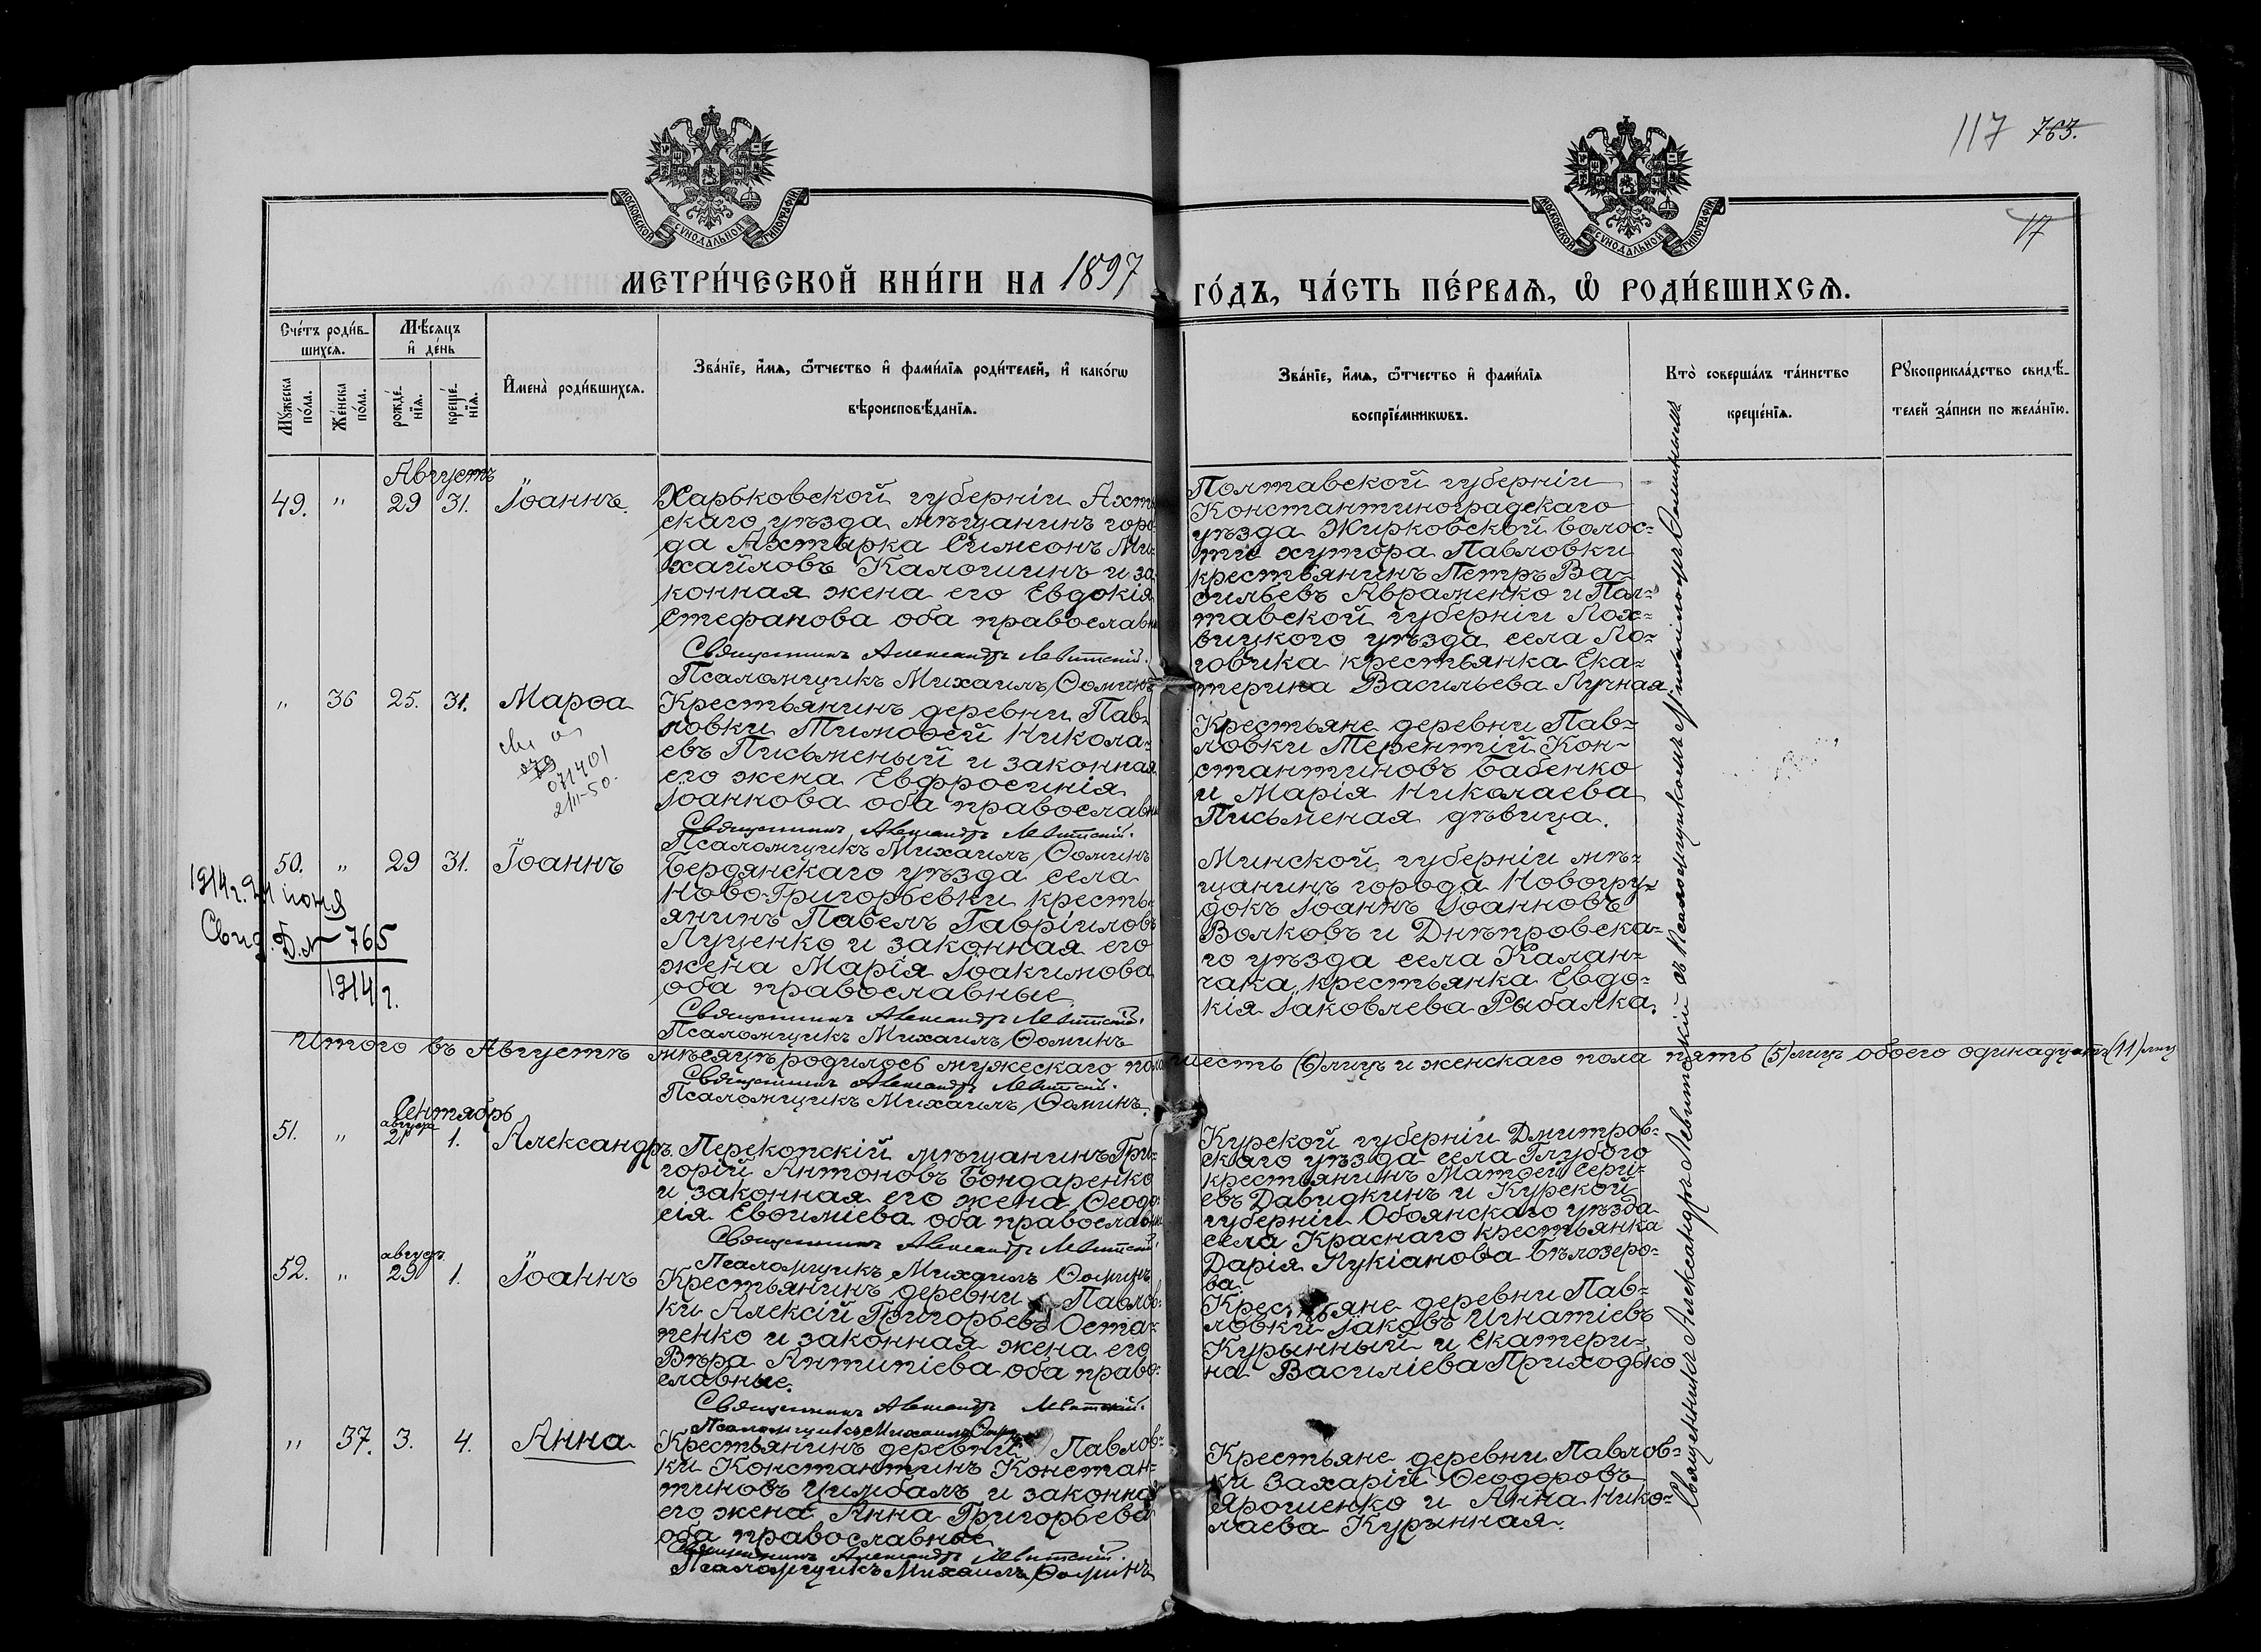 117 763.
17
МОСКОВСКОЙ СѴНОДАЛЬНОЙ ТИПОГРАФІИ
МОСКОВСКОЙ СѴНОДАЛЬНОЙ ТИПОГРАФІИ
МЕТРИ́ЧЕСКОЙ КНИ́ГИ НА 1897
ГО́ДЪ, ЧА́СТЬ ПЕ́РВАѦ, Ѡ҆ РОДИ́ВШИХСѦ.
Сче́тъ роди́в-
шихсѧ.
Мꙋ́жеска по́ла.
Же́нска по́ла.
Мѣ́сѧцъ
и҆ де́нь
рожде́-нїѧ.
креще́-нїѧ.
И҆мена̀ роди́вшихсѧ.
Зва́нїе, и҆́мѧ, ѻ҆́тчество и҆ фами́лїѧ роди́телей, и҆ како́гѡ
вѣроисповѣ́данїѧ.
Зва́нїе, и҆́мѧ, ѻ҆́тчество и҆ фами́лїѧ
воспрїе́мникѡвъ.
Кто̀ соверша́лъ та́инство
креще́нїѧ.
Рꙋкоприкла́дство свидѣ́-
телей за́писи по жела́нїю.
Августъ
49. " 29 31. Іоаннъ.
Харьковской губерніи Ахты
скаго уѣзда мѣщанинъ горо-
да Ахтырка Симеонъ Ми-
хайловъ Калошинъ и за-
конная жена его Евдокія
Стефанова оба православн
Священникъ Александръ Левитскій.
Псаломщикъ Михаилъ Ѳоминъ
Полтавской губерніи
Константиноградскаго
уѣзда Жирковской волос-
ти хутора Павловки
крестьянинъ Петръ Ва-
сильевъ Авраменко и Пол-
тавской губерніи Лох-
вицкого уѣзда села По-
говчика крестьянка Ека-
терина Васильева Лучная
" 36 25. 31. Марѳа
071401
2/II-50.
Крестьянинъ деревни Пав-
ловки Тимоѳей Никола-
евъ Письменый и законная
его жена Евфросинія
Іоаннова оба православн
Священникъ Александръ Левитскій.
Псаломщикъ Михаилъ Ѳоминъ
Крестьяне деревни Пав-
ловки Терентій Кон-
стантиновъ Бабенко
и Марія Николаева
Письменая дѣвица.
50. " 29 31. Іоаннъ
1914 г. 21 іюня
Свид. Б. № 765
1914 г.
Бердянскаго уѣзда села
Ново-Григорьевки кресть-
янинъ Павелъ Гавріиловъ
Луценко и законная его
жена Марія Іоакимова
оба православные.
Священникъ Александръ Левитскій.
Псаломщикъ Михаилъ Ѳоминъ
Минской губерніи мѣ-
щанинъ города Новогру-
докъ Іоаннъ Іоанновъ
Волковъ и Днѣпровска-
го уѣзда села Калан-
чака, крестьянка Евдо-
кія Іаковлева Рыбалка.
Итого въ Августѣ мѣсяцѣ родилось мужескаго пола шесть (6) лицъ и женскаго пола пять (5) лицъ обоего одинадцать (11) лиц
Священникъ Александръ Левитскій.
Псаломщикъ Михаилъ Ѳоминъ.
Сентябрь
августа
51. " 21 1. Александръ
Перекопскій мѣщанинъ Гри-
горій Антоновъ Бондаренко
и законная его жена Ѳеодо-
сія Евѳиміева оба православн
Священникъ Александръ Левитскій.
Псаломщикъ Михаилъ Ѳоминъ
Курской губерніи Дмитров-
скаго уѣзда села Глубого
крестьянинъ Матѳей Серги-
евъ Давидкинъ и Курской
губерніи Обоянскаго уѣзда
села Краснаго крестьянка
Дарія Лукіанова Бѣлозеро-
ва
август.
52. " 29 1. Іоаннъ
Крестьянинъ деревни Павлов-
ки Алексій Григорьевъ Оста-
пенко и законная жена его
Вѣра Антипіева оба право-
славные.
Священникъ Александръ Левитскій.
Псаломщикъ Михаилъ Ѳоминъ
Крестьяне деревни Пав-
ловки Іаковъ Игнатіевъ
Курынный и Екатери-
на Василіева Приходько
" 37. 3. 4. Анна
Крестьянинъ деревни Павлов-
ки Константинъ Констан-
тиновъ Цимбалъ и законна
его жена Анна Григорьева
оба православные
Священникъ Александръ Левитскій.
Псаломщикъ Михаилъ Ѳоминъ
Крестьяне деревни Павлов-
ки Захарій Ѳеодоровъ
Ярошенко и Анна Нико-
лаева Курынная.
Священникъ Александръ Левитскій съ Псаломщикомъ Михаиломъ Ѳоминымъ